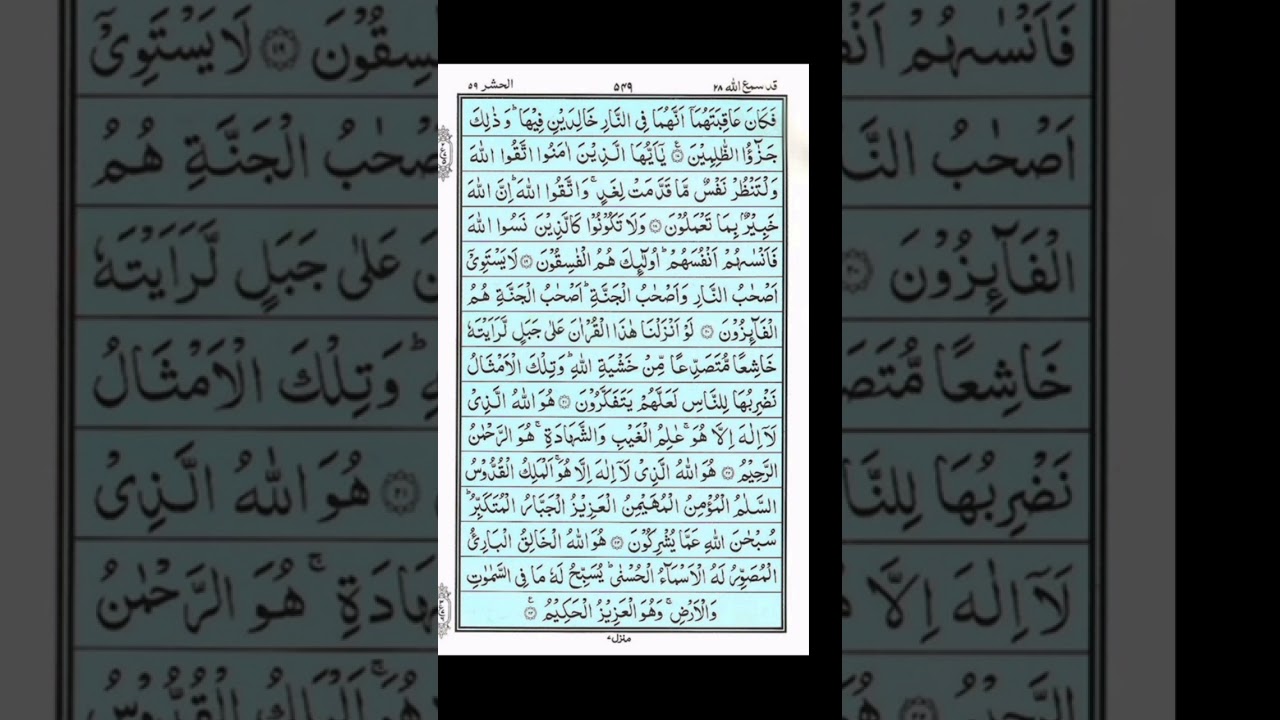 قد سمع الله ٢٨
٥٤٩
الحشر ٥٩
فَكَانَ عَاقِبَتَهُمَاۤ اَنَّهُمَا فِی النَّارِ خَالِدَیْنِ فِیْهَا ؕ وَ ذٰلِكَ
جَزٰٓؤُا الظّٰلِمِیْنَ ۟ یٰۤاَیُّهَا الَّذِیْنَ اٰمَنُوا اتَّقُوا اللّٰهَ
وَلْتَنْظُرْ نَفْسٌ مَّا قَدَّمَتْ لِغَدٍ ۚ وَ اتَّقُوا اللّٰهَ ؕ اِنَّ اللّٰهَ
خَبِیْرٌۢ بِمَا تَعْمَلُوْنَ ۟ وَ لَا تَكُوْنُوْا كَالَّذِیْنَ نَسُوا اللّٰهَ
فَاَنْسٰىهُمْ اَنْفُسَهُمْ ؕ اُولٰٓىِٕكَ هُمُ الْفٰسِقُوْنَ ۟ لَا یَسْتَوِیْۤ
اَصْحٰبُ النَّارِ وَ اَصْحٰبُ الْجَنَّةِ ؕ اَصْحٰبُ الْجَنَّةِ هُمُ
الْفَآىِٕزُوْنَ ۟ لَوْ اَنْزَلْنَا هٰذَا الْقُرْاٰنَ عَلٰی جَبَلٍ لَّرَاَیْتَهٗ
خَاشِعًا مُّتَصَدِّعًا مِّنْ خَشْیَةِ اللّٰهِ ؕ وَ تِلْكَ الْاَمْثَالُ
نَضْرِبُهَا لِلنَّاسِ لَعَلَّهُمْ یَتَفَكَّرُوْنَ ۟ هُوَ اللّٰهُ الَّذِیْ
لَاۤ اِلٰهَ اِلَّا هُوَ ۚ عٰلِمُ الْغَیْبِ وَ الشَّهَادَةِ ۚ هُوَ الرَّحْمٰنُ
الرَّحِیْمُ ۟ هُوَ اللّٰهُ الَّذِیْ لَاۤ اِلٰهَ اِلَّا هُوَ ۚ اَلْمَلِكُ الْقُدُّوْسُ
السَّلٰمُ الْمُؤْمِنُ الْمُهَیْمِنُ الْعَزِیْزُ الْجَبَّارُ الْمُتَكَبِّرُ ؕ
سُبْحٰنَ اللّٰهِ عَمَّا یُشْرِكُوْنَ ۟ هُوَ اللّٰهُ الْخَالِقُ الْبَارِئُ
الْمُصَوِّرُ لَهُ الْاَسْمَآءُ الْحُسْنٰی ؕ یُسَبِّحُ لَهٗ مَا فِی السَّمٰوٰتِ
وَ الْاَرْضِ ۚ وَ هُوَ الْعَزِیْزُ الْحَكِیْمُ ۟
منزل ٧